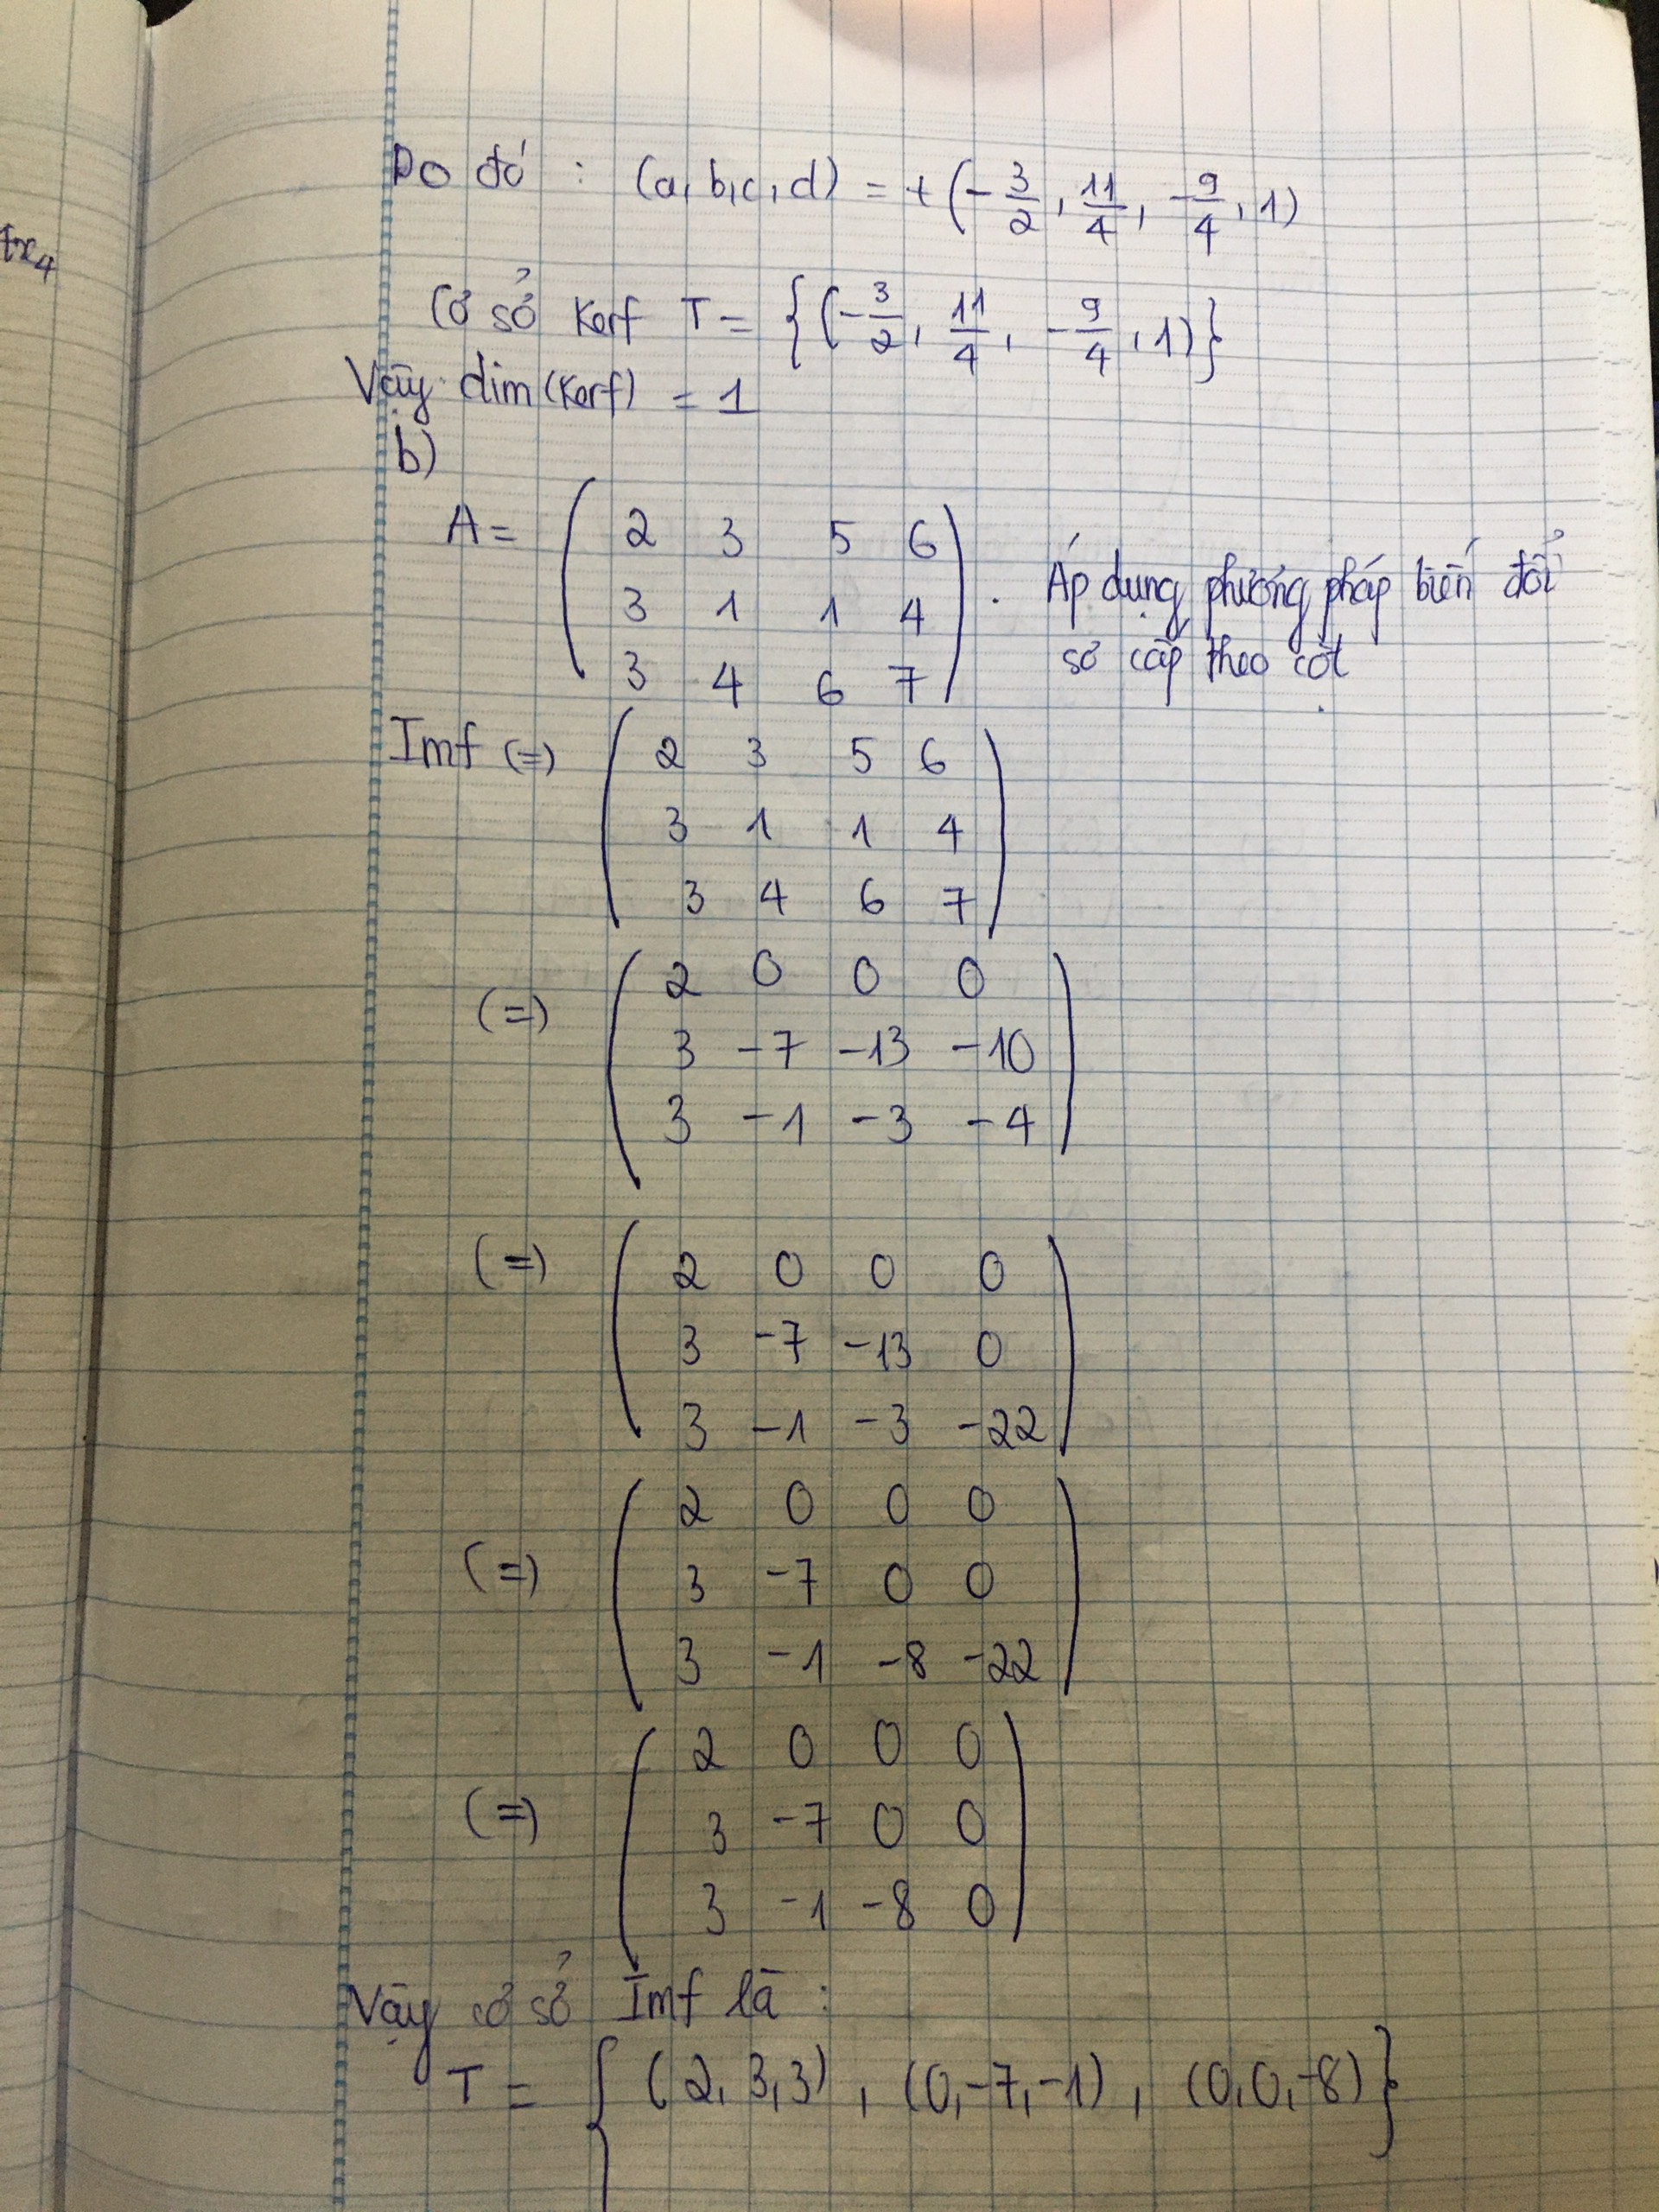 tx₄
Do đó : (a, b, c, d) = t (-3/2, 11/4, -9/4, 1)
Cơ sở Kerf T = {(-3/2, 11/4, -9/4, 1)}
Vậy dim(Kerf) = 1
b)
A = ( 2 3 5 6
3 1 1 4
3 4 6 7 ) . Áp dụng phương pháp biến đổi
sơ cấp theo cột
Imf (=) ( 2 3 5 6
3 1 1 4
3 4 6 7 )
(=) ( 2 0 0 0
3 -7 -13 -10
3 -1 -3 -4 )
(=) ( 2 0 0 0
3 -7 -13 0
3 -1 -3 -22 )
(=) ( 2 0 0 0
3 -7 0 0
3 -1 -8 -22 )
(=) ( 2 0 0 0
3 -7 0 0
3 -1 -8 0 )
Vậy cơ sở Imf là :
T = { (2, 3, 3) , (0, -7, -1) , (0, 0, -8) }